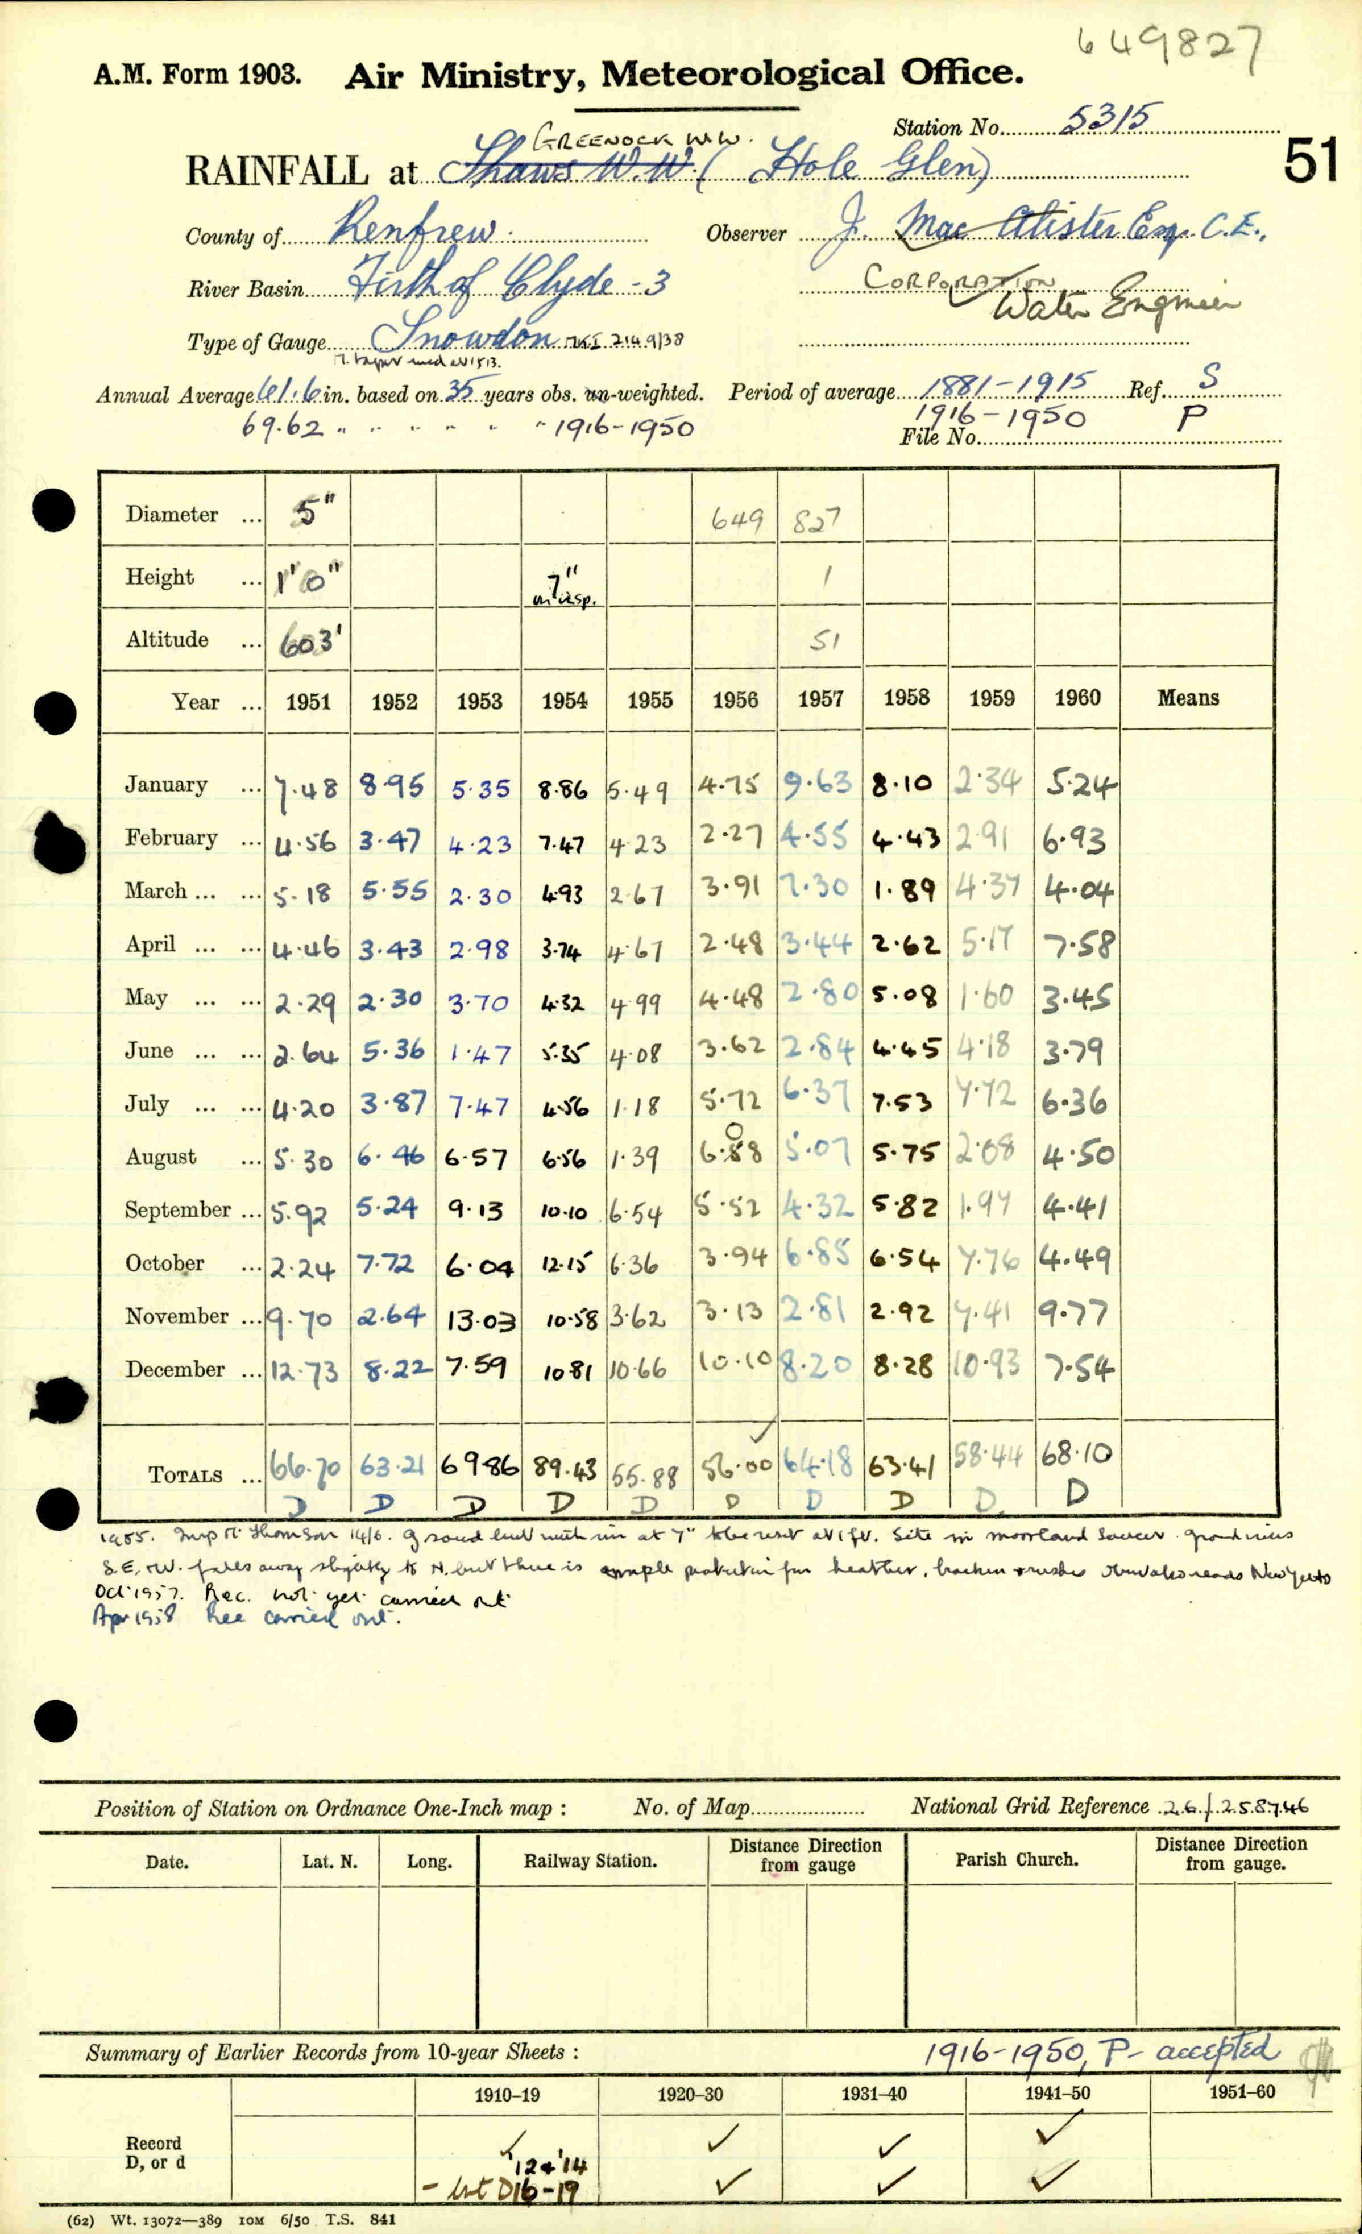 649827
A.M. Form 1903. Air Ministry, Meteorological Office.
Station No. 5315
GREENOCK W.W.
RAINFALL at Shaws W.W. ( Hole Glen) 51
County of Renfrew. Observer J. Mac Alister Esq. C.E.,
River Basin Firth of Clyde - 3 CORPORATION Water Engineer
Type of Gauge Snowdon 2149/38
Annual Average 61.6 in. based on 35 years obs. un-weighted. Period of average 1881-1915 Ref. S
69.62 " " " " " " 1916-1950 1916-1950 P
File No.
Diameter ... 5" 649 827
Height ... 1'0" 7" on insp. 1
Altitude ... 603' 51
Year ... 1951 1952 1953 1954 1955 1956 1957 1958 1959 1960 Means
January ... 7.48 8.95 5.35 8.86 5.49 4.75 9.63 8.10 2.34 5.24
February ... 4.56 3.47 4.23 7.47 4.23 2.27 4.55 4.43 2.91 6.93
March ... ... 5.18 5.55 2.30 4.93 2.67 3.91 7.30 1.89 4.37 4.04
April ... ... 4.46 3.43 2.98 3.74 4.67 2.48 3.44 2.62 5.17 7.58
May ... ... 2.29 2.30 3.70 4.32 4.99 4.48 2.80 5.08 1.60 3.45
June ... ... 2.64 5.36 1.47 5.35 4.08 3.62 2.84 4.45 4.18 3.79
July ... ... 4.20 3.87 7.47 4.56 1.18 5.72 6.37 7.53 7.72 6.36
August ... 5.30 6.46 6.57 6.56 1.39 6.08 5.07 5.75 2.08 4.50
September ... 5.92 5.24 9.13 10.10 6.54 5.52 4.32 5.82 1.97 4.41
October ... 2.24 7.72 6.04 12.15 6.36 3.94 6.85 6.54 7.76 4.49
November ... 9.70 2.64 13.03 10.58 3.62 3.13 2.81 2.92 7.41 9.77
December ... 12.73 8.22 7.59 10.81 10.66 10.10 8.20 8.28 10.93 7.54
TOTALS ... 66.70 63.21 69.86 89.43 55.88 56.00 64.18 63.41 58.44 68.10
D D D D D D D D D D
1955. Insp Mr Thomson 14/6. good but with rim at 7" to be reset at 1 ft. Site in moorland saucer. ground rises
S.E, & W. falls away slightly to N. but there is ample protection from heather, bracken & rushes
Oct 1957. Rec. not yet carried out
Apr 1958 Rec carried out.
Position of Station on Ordnance One-Inch map : No. of Map National Grid Reference 26/258746
Date. Lat. N. Long. Railway Station. Distance Direction from gauge Parish Church. Distance Direction from gauge.
Summary of Earlier Records from 10-year Sheets : 1916-1950, P- accepted
1910-19 1920-30 1931-40 1941-50 1951-60
Record ✓ ✓ ✓ ✓
D, or d 12 & '14
- but D16-19 ✓ ✓ ✓
(62) Wt. 13072—389 10M 6/50 T.S. 841